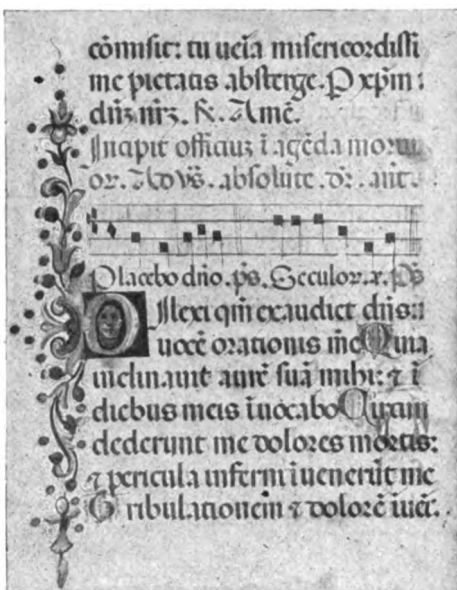 cōmisit: tu ueīa misericordissi
me pietatis absterge. P xp̄m:
dn̄z nr̄z. R̄. Amē.
Incipit officiuz ī agēda mortu
or. Ad vs̄. absolute. dr̄. ant.
Placebo dn̄o. ps̄. Seculor. x. Ps̄
Dilexi qm̄ exaudiet dn̄s:
uocē orationis mē Quia
inclinauit aurē suā mihi: ⁊ ī
diebus meis īuocabo Circun
dederunt me dolores mortis:
⁊ pericula inferni īuenerūt me
Tribulationem ⁊ dolorē īuēi.